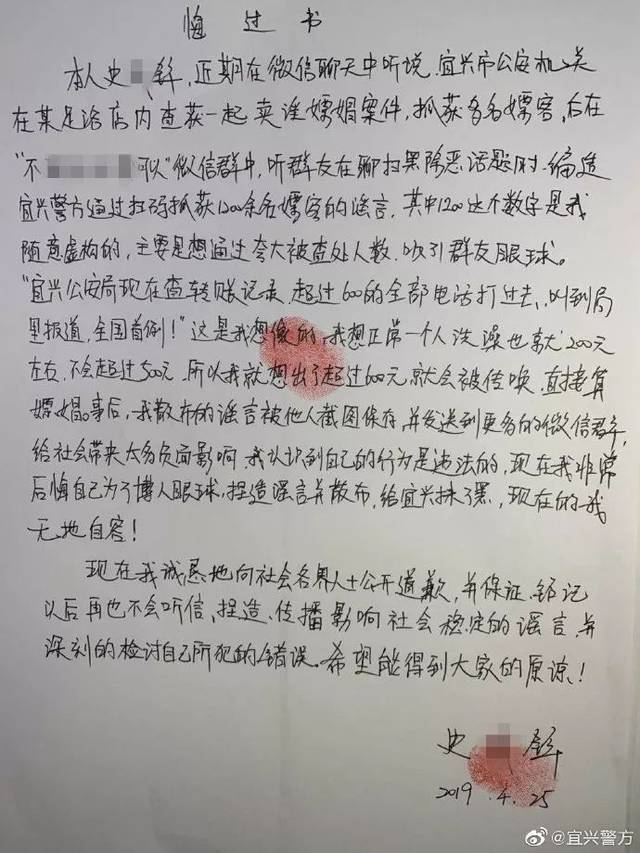 悔过书
本人史 锋,近期在微信聊天中听说,宜兴市公安机关
在某足浴店内查获一起卖淫嫖娼案件,抓获多名嫖客,后在
"不 可以"微信群中,听群友在聊扫黑除恶话题时,编造
宜兴警方通过扫码抓获1200余名嫖客的谣言,其中1200这个数字是我
随意虚构的,主要是想通过夸大被查处人数,吸引群友眼球。
"宜兴公安局现在查转账记录,超过600的全部电话打过去,叫到局
里报道,全国首例!"这是我想像的,我想正常一个人洗澡也就200元
左右,不会超过500元,所以我就想出了超过600元就会被传唤,直接算
嫖娼。事后,我散布的谣言被他人截图保存,并发送到更多的微信群,
给社会带来太多负面影响,我认识到自己的行为是违法的,现在我非常
后悔自己为了博人眼球,捏造谣言并散布,给宜兴抹了黑,现在的我
无地自容!
现在我诚恳地向社会各界人士公开道歉,并保证,邹记
以后再也不会听信、捏造、传播影响社会稳定的谣言,并
深刻的检讨自己所犯的错误。希望能得到大家的原谅!
史 锋
2019.4.25
@宜兴警方